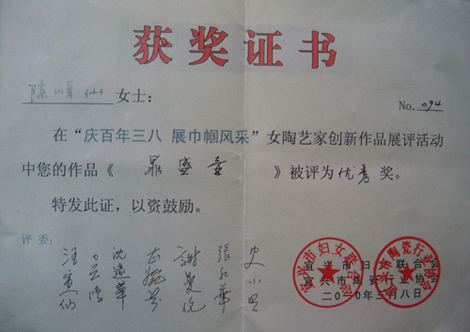 获奖证书
顺仙女士：
No. 094
在“庆百年三八 展巾帼风采”女陶艺家创新作品展评活动
中您的作品《 鼎盛壶 》被评为优秀奖。
特发此证，以资鼓励。
评委：
史小明
张红华
谢曼伦
沈遽华
汪寅仙
宜兴市妇女联合会
宜兴市陶瓷行业协会
二〇一〇年三月八日